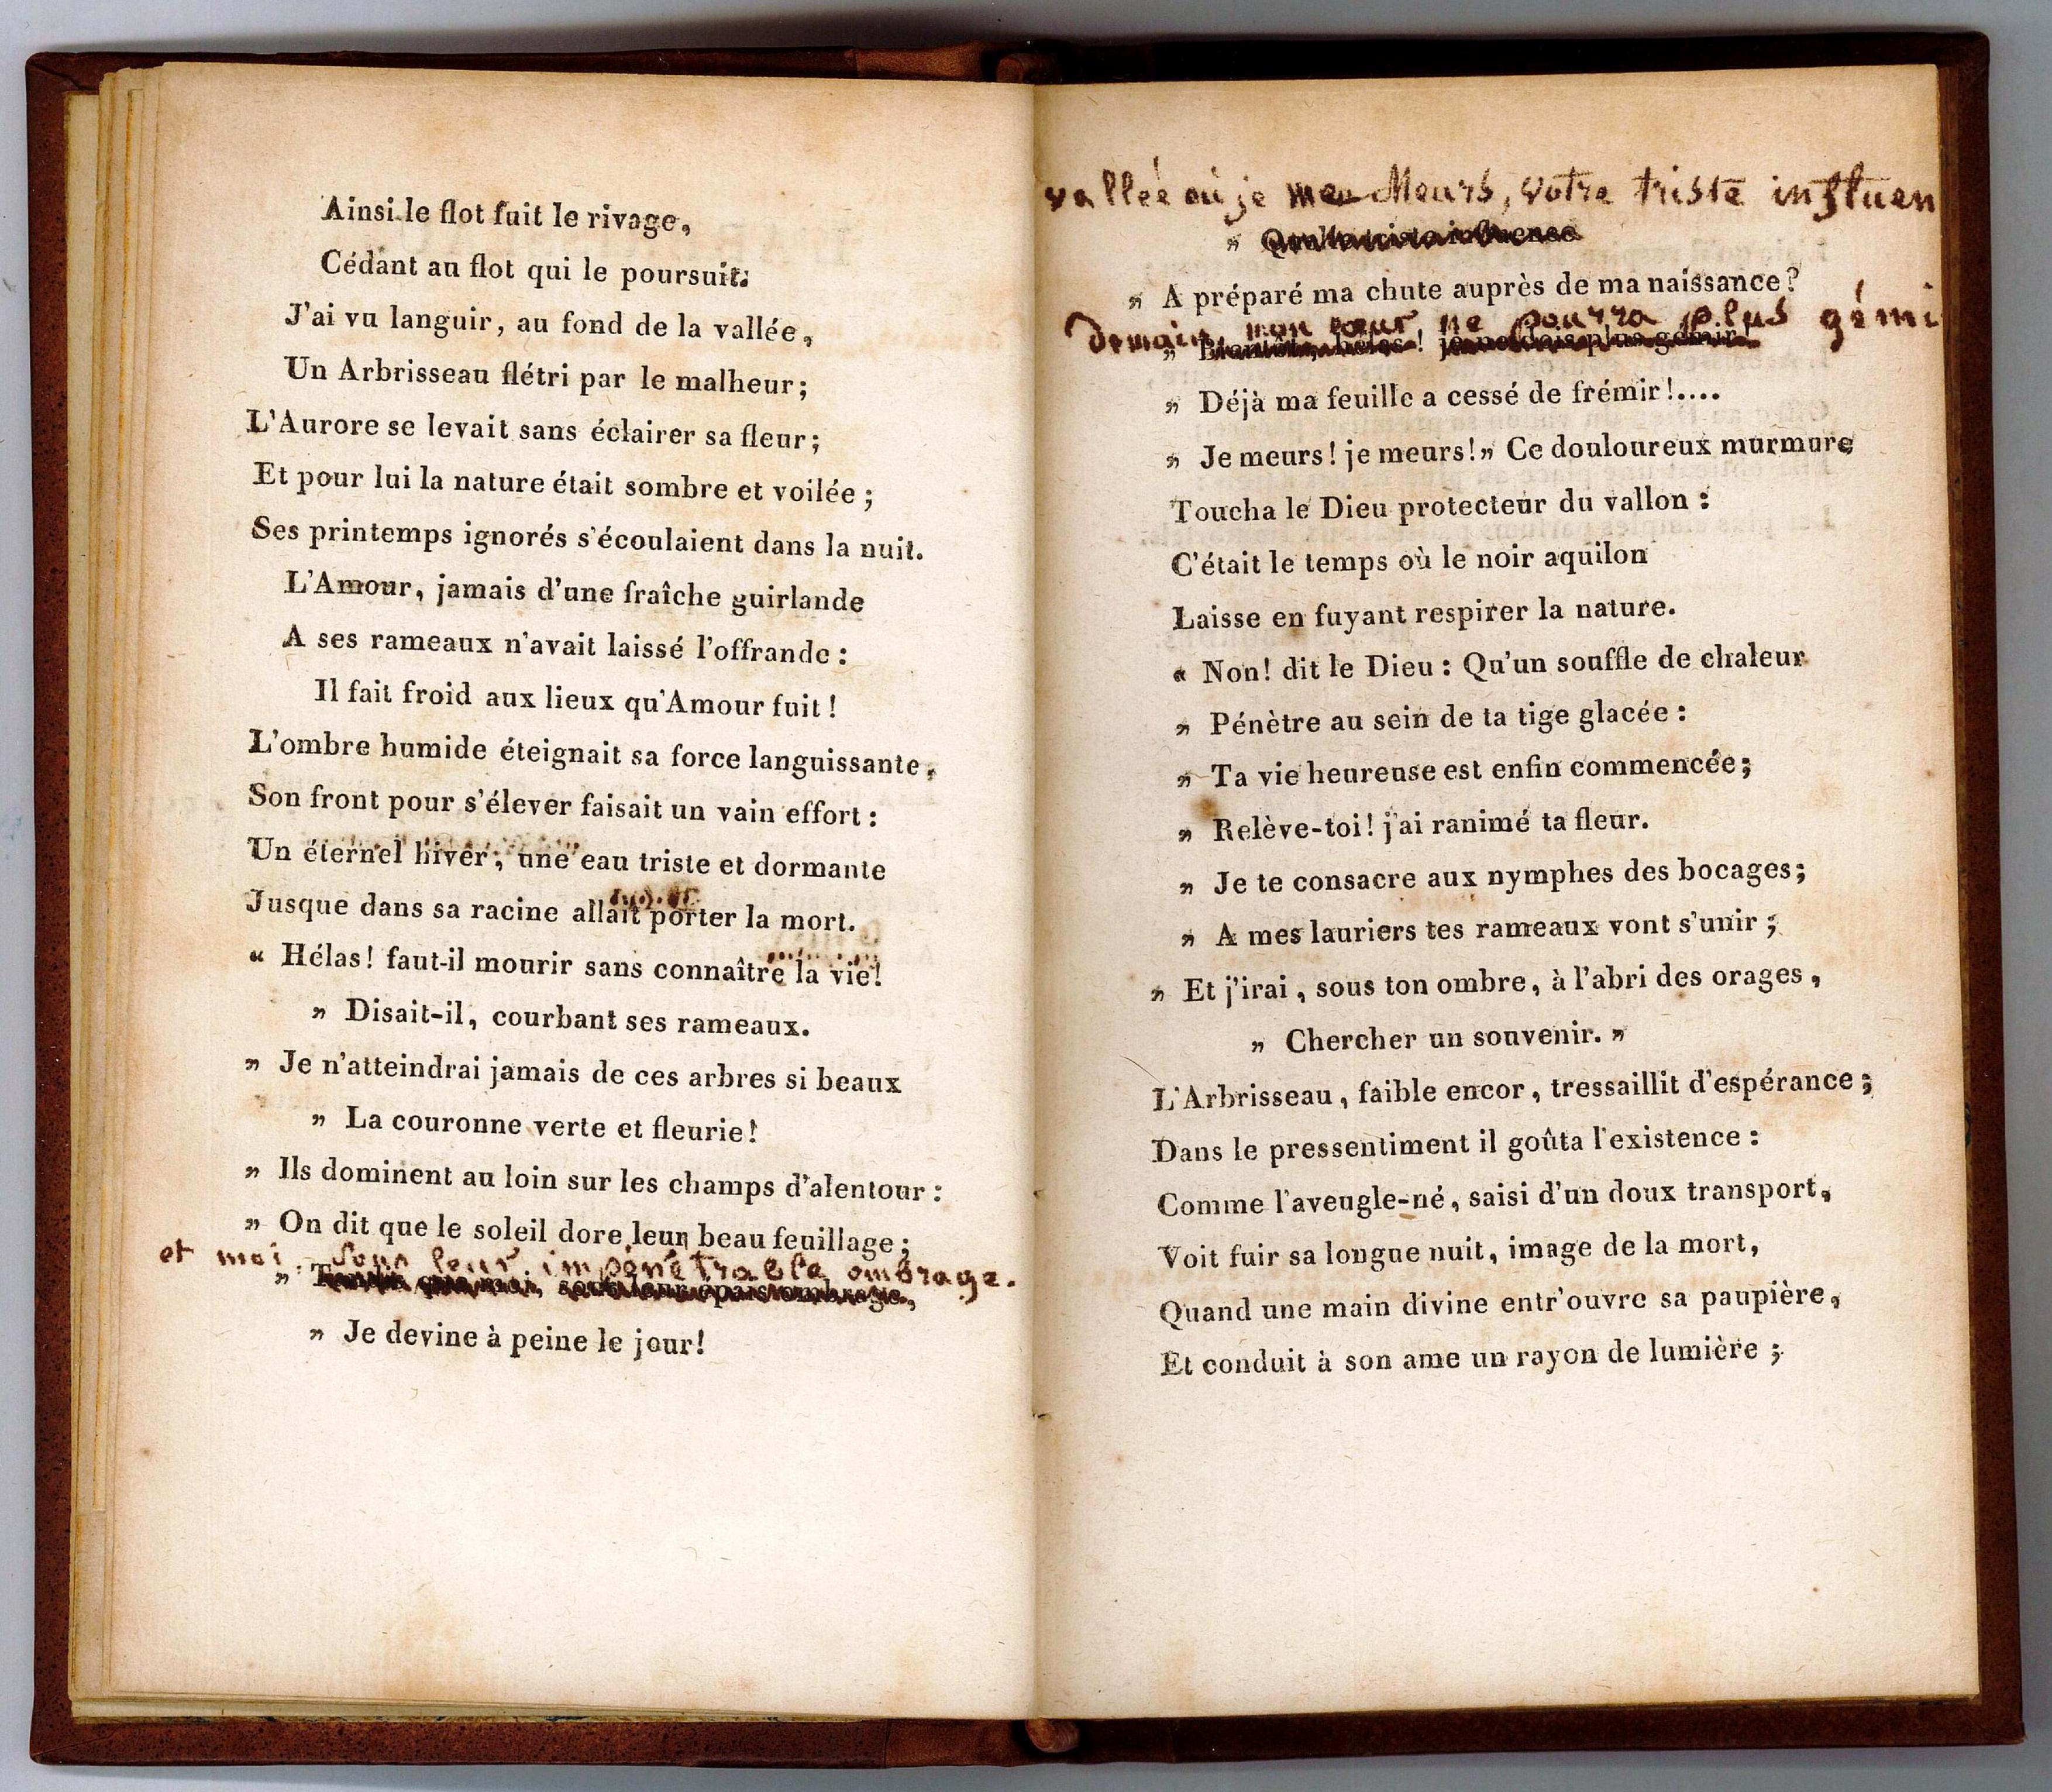 Ainsi le flot fuit le rivage,
Cédant au flot qui le poursuit:
J'ai vu languir, au fond de la vallée,
Un Arbrisseau flétri par le malheur;
L'Aurore se levait sans éclairer sa fleur;
Et pour lui la nature était sombre et voilée;
Ses printemps ignorés s'écoulaient dans la nuit.
L'Amour, jamais d'une fraîche guirlande
A ses rameaux n'avait laissé l'offrande:
Il fait froid aux lieux qu'Amour fuit!
L'ombre humide éteignait sa force languissante,
Son front pour s'élever faisait un vain effort:
Un éternel hiver, une eau triste et dormante
Jusque dans sa racine allait porter la mort.
« Hélas! faut-il mourir sans connaître la vie!
» Disait-il, courbant ses rameaux.
» Je n'atteindrai jamais de ces arbres si beaux
» La couronne verte et fleurie!
» Ils dominent au loin sur les champs d'alentour:
» On dit que le soleil dore leur beau feuillage;
et moi, sous leur impénétrable ombrage.
» Tandis que moi, sous leur épais ombrage,
» Je devine à peine le jour!
vallée où je meu Meurs, votre triste influen
» Quelle triste influence
» A préparé ma chute auprès de ma naissance?
Demain, mon cœur ne pourra plus gémi
» Bientôt, hélas! je ne dois plus gémir.
» Déjà ma feuille a cessé de frémir!....
» Je meurs! je meurs!» Ce douloureux murmure
Toucha le Dieu protecteur du vallon:
C'était le temps où le noir aquilon
Laisse en fuyant respirer la nature.
« Non! dit le Dieu: Qu'un souffle de chaleur
» Pénètre au sein de ta tige glacée:
» Ta vie heureuse est enfin commencée;
» Relève-toi! j'ai ranimé ta fleur.
» Je te consacre aux nymphes des bocages;
» A mes lauriers tes rameaux vont s'unir;
» Et j'irai, sous ton ombre, à l'abri des orages,
» Chercher un souvenir. »
L'Arbrisseau, faible encor, tressaillit d'espérance;
Dans le pressentiment il goûta l'existence:
Comme l'aveugle-né, saisi d'un doux transport,
Voit fuir sa longue nuit, image de la mort,
Quand une main divine entr'ouvre sa paupière,
Et conduit à son ame un rayon de lumière;